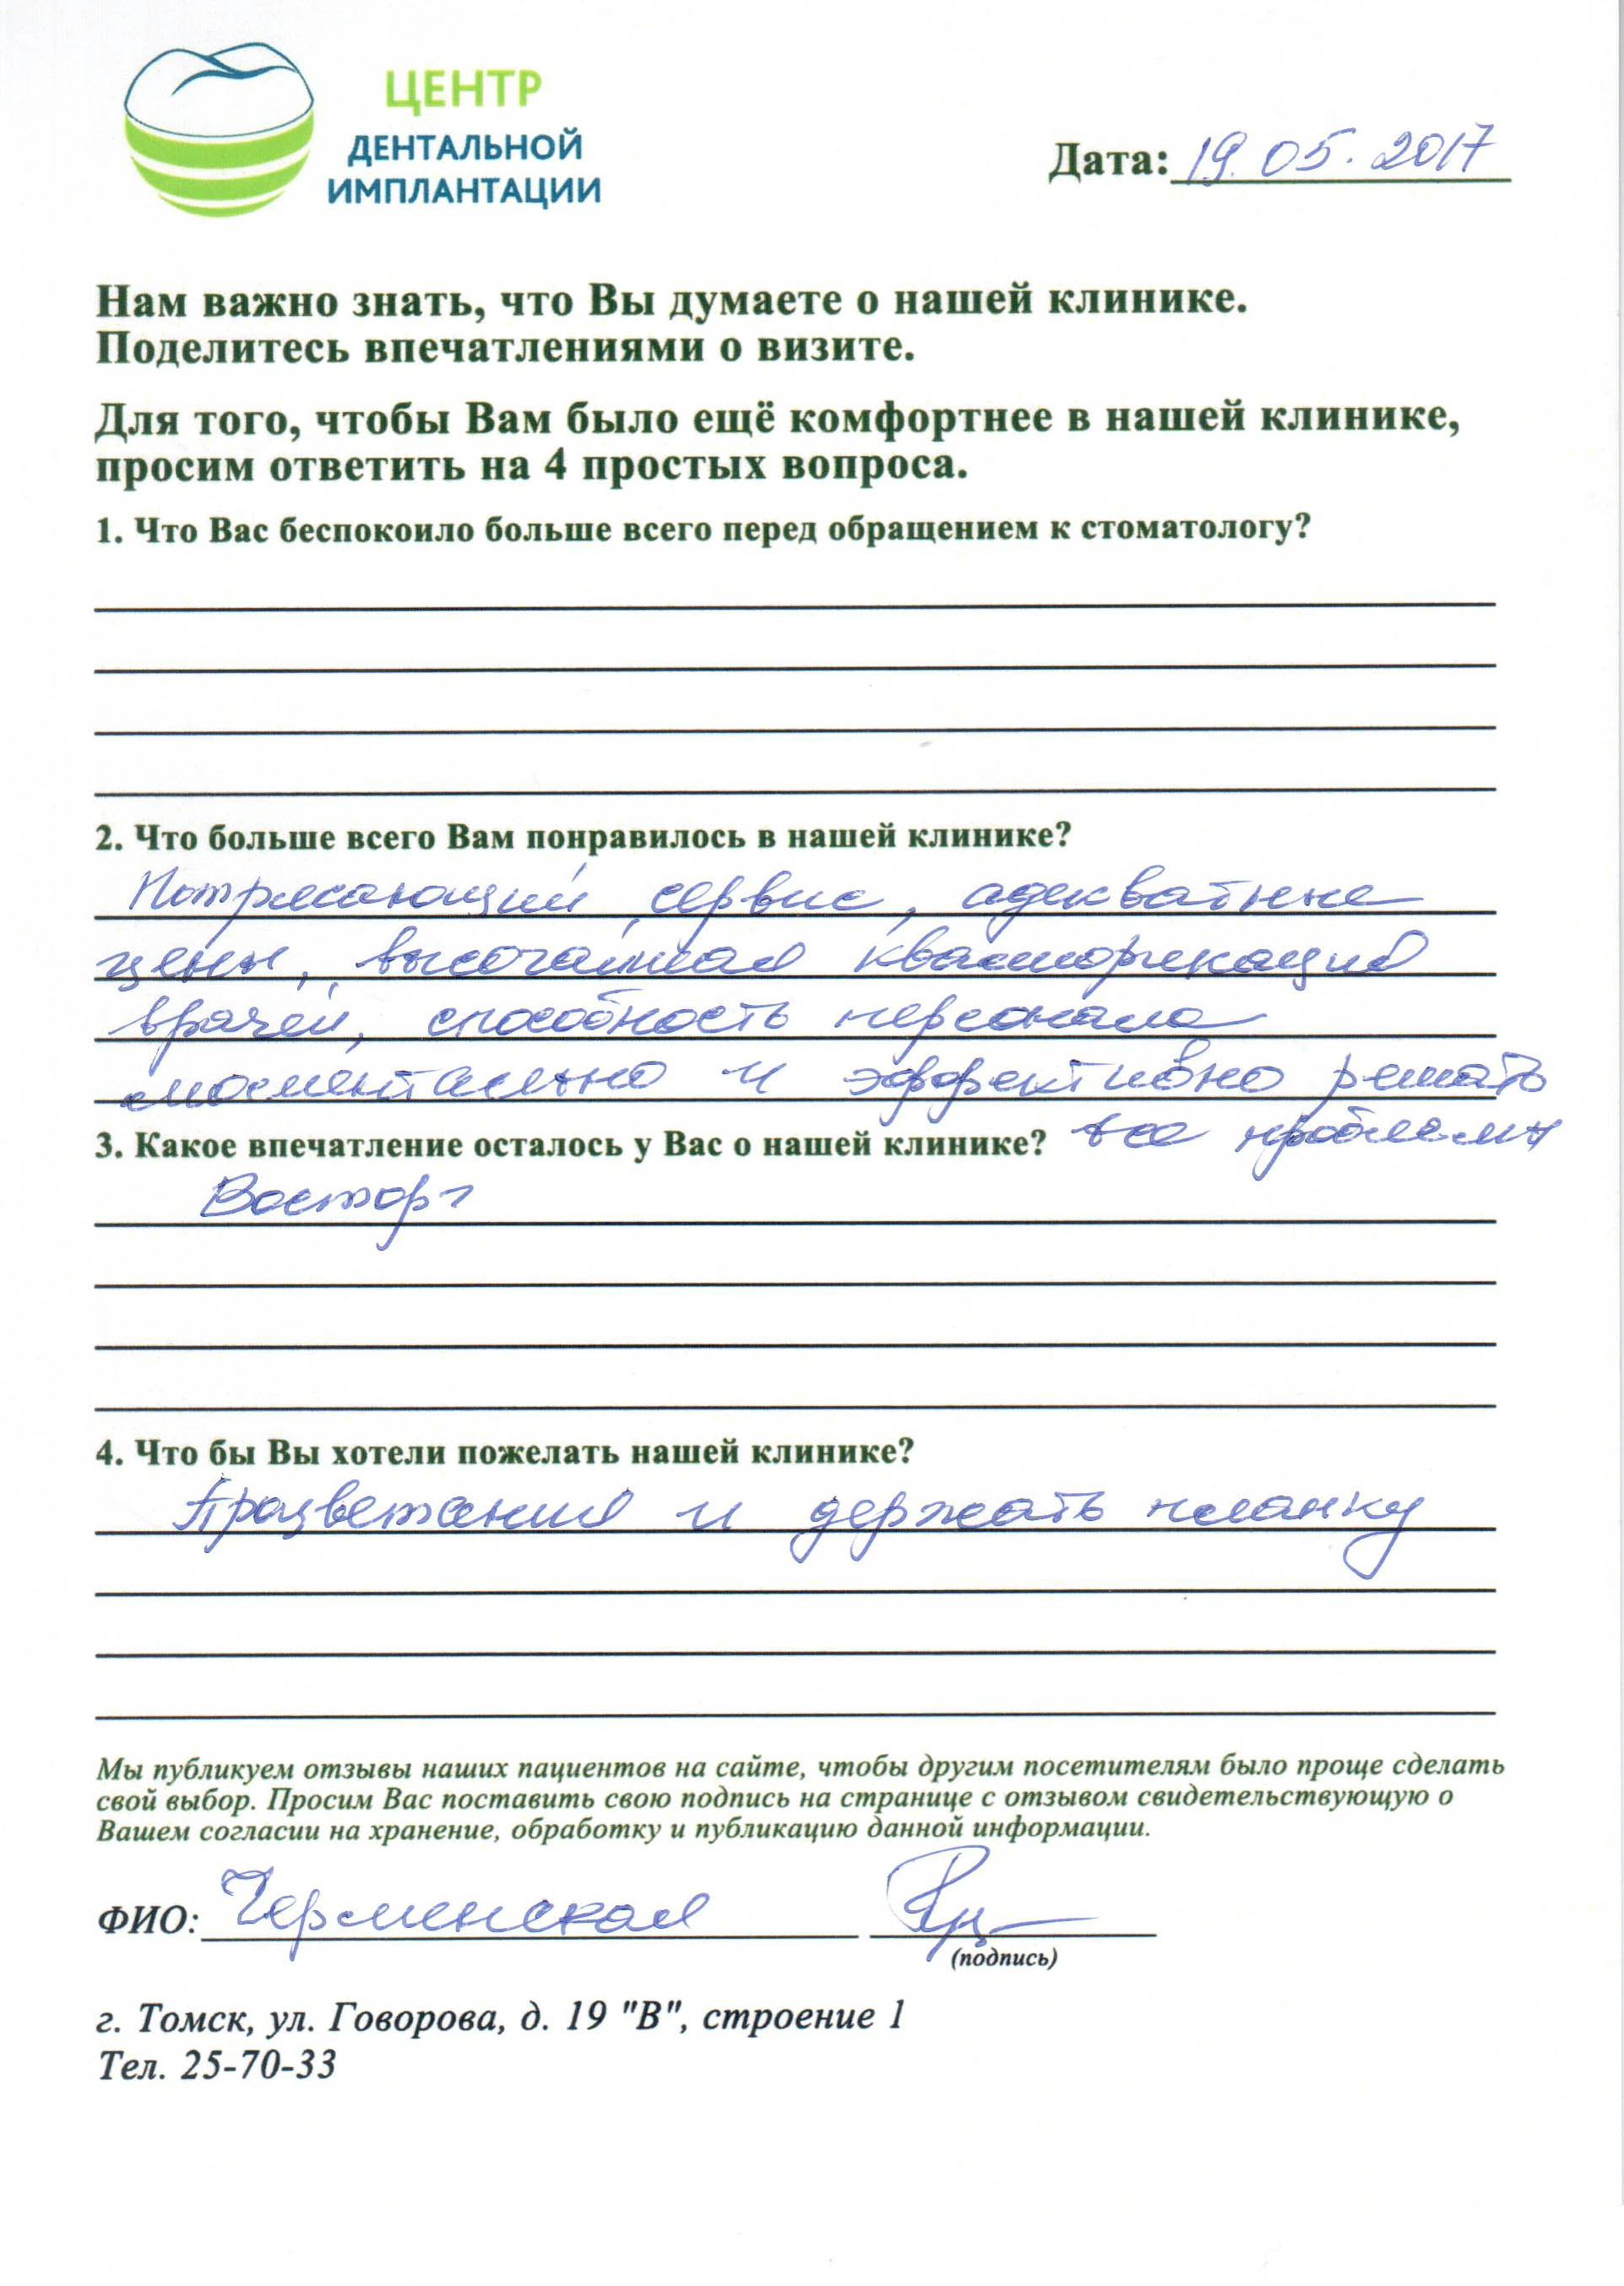 ЦЕНТР
ДЕНТАЛЬНОЙ
ИМПЛАНТАЦИИ
Дата: 19.05.2017
Нам важно знать, что Вы думаете о нашей клинике.
Поделитесь впечатлениями о визите.
Для того, чтобы Вам было ещё комфортнее в нашей клинике,
просим ответить на 4 простых вопроса.
1. Что Вас беспокоило больше всего перед обращением к стоматологу?
2. Что больше всего Вам понравилось в нашей клинике?
Потрясающий сервис, адекватные
цены, высочайшая квалификация
врачей, способность персонала
моментально и эффективно решать
все проблемы
3. Какое впечатление осталось у Вас о нашей клинике?
Восторг
4. Что бы Вы хотели пожелать нашей клинике?
Процветания и держать планку
Мы публикуем отзывы наших пациентов на сайте, чтобы другим посетителям было проще сделать
свой выбор. Просим Вас поставить свою подпись на странице с отзывом свидетельствующую о
Вашем согласии на хранение, обработку и публикацию данной информации.
ФИО: Черменская
(подпись)
г. Томск, ул. Говорова, д. 19 "В", строение 1
Тел. 25-70-33